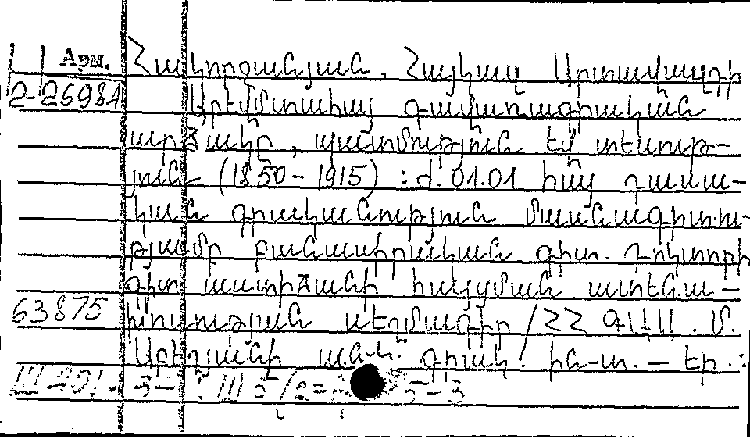 Арм. Հակոբջանյան, Հայկազ Արտավազդի
2-26981 Արևմտահայ գավառագրական
արձակը, պատմություն եվ տեսութ-
յուն (1850-1915) : Ժ.01.01 հայ դասա-
կան գրականություն մասնագիտու-
թյամբ բանասիրական գիտ. դոկտորի
գիտ աստիճանի հայցման ատենա-
63875 խոսության սեղմագիր / ՀՀ ԳԱԱ. Մ.
Աբեղյանի ան. գրակ. ին-տ. — Եր. :